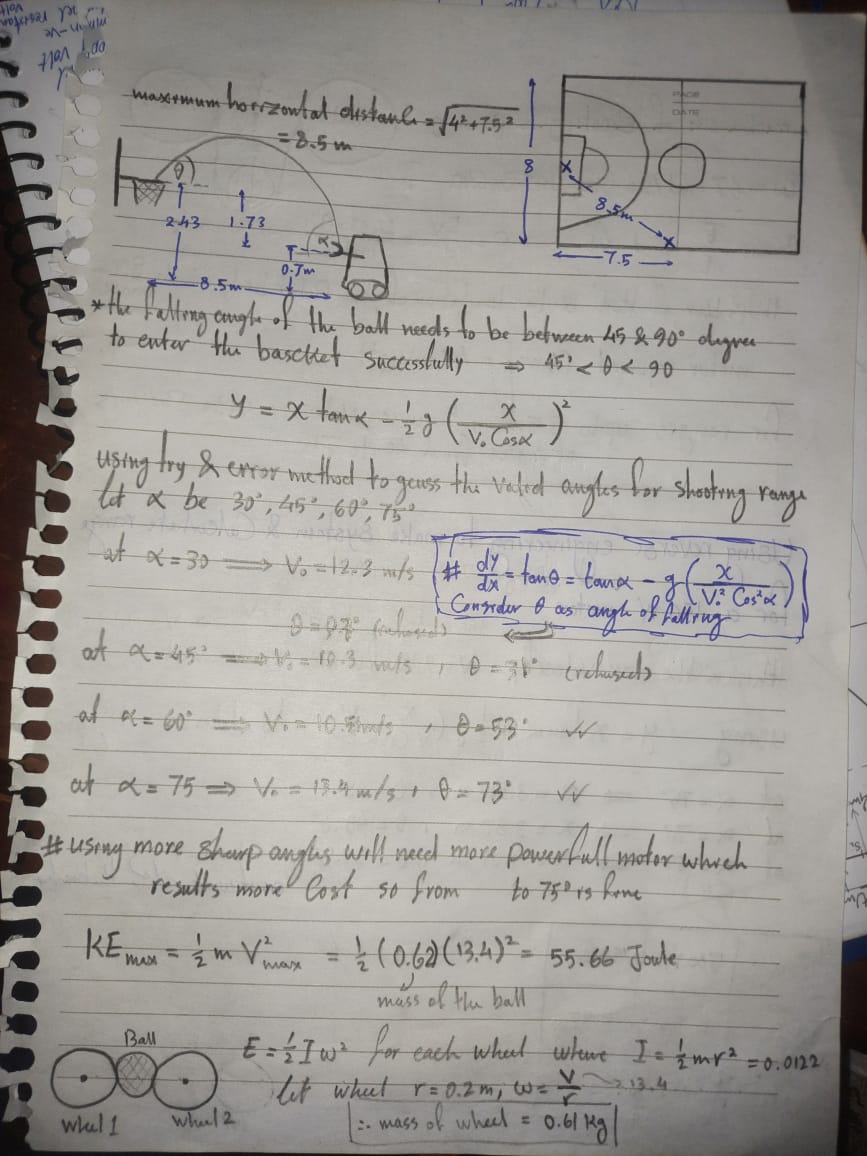 maxımum horızontal distance = √4²+7.5²
= 8.5 m
PAGE
DATE
8
8.5m
7.5
θ
2.43
1.73
α
0.7m
8.5m
* the falling angle of the ball needs to be between 45 & 90° degree
to enter the bascket successfully ⇒ 45° < θ < 90
y = x tanα - ½ g ( x / V₀ Cosα )²
using try & error method to geuss the valied angles for shooting range
let α be 30°, 45°, 60°, 75°
at α = 30 ⟹ V₀ = 12.3 m/s
# dy/dx = tanθ = tanα - g ( x / V₀² Cos²α )
Consider θ as angle of falling
θ = (refused)
at α = 45° ⟹ V₀ = 10.3 m/s , θ = 31° (refused)
at α = 60° ⟹ V₀ = 10.5 m/s , θ = 53° ✓✓
at α = 75 ⟹ V₀ = 13.4 m/s , θ = 73° ✓✓
# using more sharp angles will need more powerfull motor which
results more Cost so from to 75° is fine
KE max = ½ m V²max = ½ (0.62)(13.4)² = 55.66 Joule
mass of the ball
Ball
E = ½ I ω² for each wheel where I = ½ mr² = 0.0122
let wheel r = 0.2 m, ω = V/r 13.4
wheel 1
wheel 2
∴ mass of wheel = 0.61 Kg